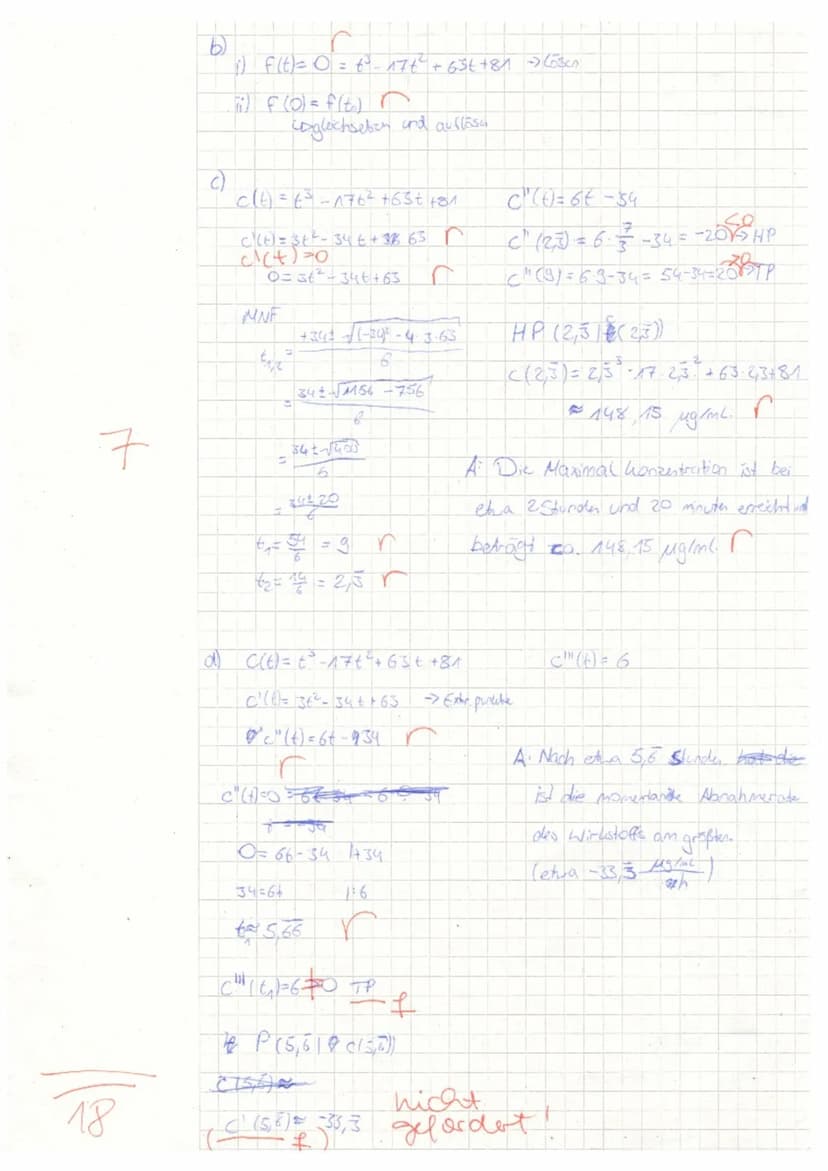 b)
i) f(t) = 0 = t³ - 17t² + 63t + 81 → lösen
r
ii) f(0) = f(t₀) r
gleichsetzen und auflösen
c)
c(t) = t³ - 17t² + 63t + 81
c'(t) = 3t² - 34t + 63 r
c'(t) = 0
0 = 3t² - 34t + 63 r
MNF
t₁/₂ = +34 ± √((-34)² - 4·3·63) / 6
= 34 ± √(1156 - 756) / 6
= 34 ± √400 / 6
= 34 ± 20 / 6
t₁ = 54/6 = 9 r
t₂ = 14/6 = 2,3̅ r
c''(t) = 6t - 34
c''(2,3̅) = 6 · 7/3 - 34 = -20 <0 r → HP
c''(9) = 6·9 - 34 = 54 - 34 = 20 >0 r → TP
HP (2,3̅ | c(2,3̅))
c(2,3̅) = 2,3̅³ - 17 · 2,3̅² + 63 · 2,3 + 81
≈ 148,15 µg/mL. r
A: Die Maximalkonzentration ist bei
etwa 2 Stunden und 20 minuten erreicht und
beträgt ca. 148,15 µg/ml. r
7
d) c(t) = t³ - 17t² + 63t + 81
c'(t) = 3t² - 34t + 63 → Extr.punkte
c''(t) = 6t - 34 r
r
c''(t) = 0
0 = 6t - 34 |+34
34 = 6t |:6
t₁ ≈ 5,6̅6̅ r
c'''(t₁) = 6 ≠ 0 TP f
P (5,6̅ | c(5,6̅))
c(5,6̅) ≈
c'(5,6̅) ≈ -33,3̅
( f )
nicht
gefordert!
c'''(t) = 6
A: Nach etwa 5,6̅ Stunden
ist die momentane Abnahmerate
des Wirkstoffs am größten.
(etwa -33,3̅ µg/mL / h)
18